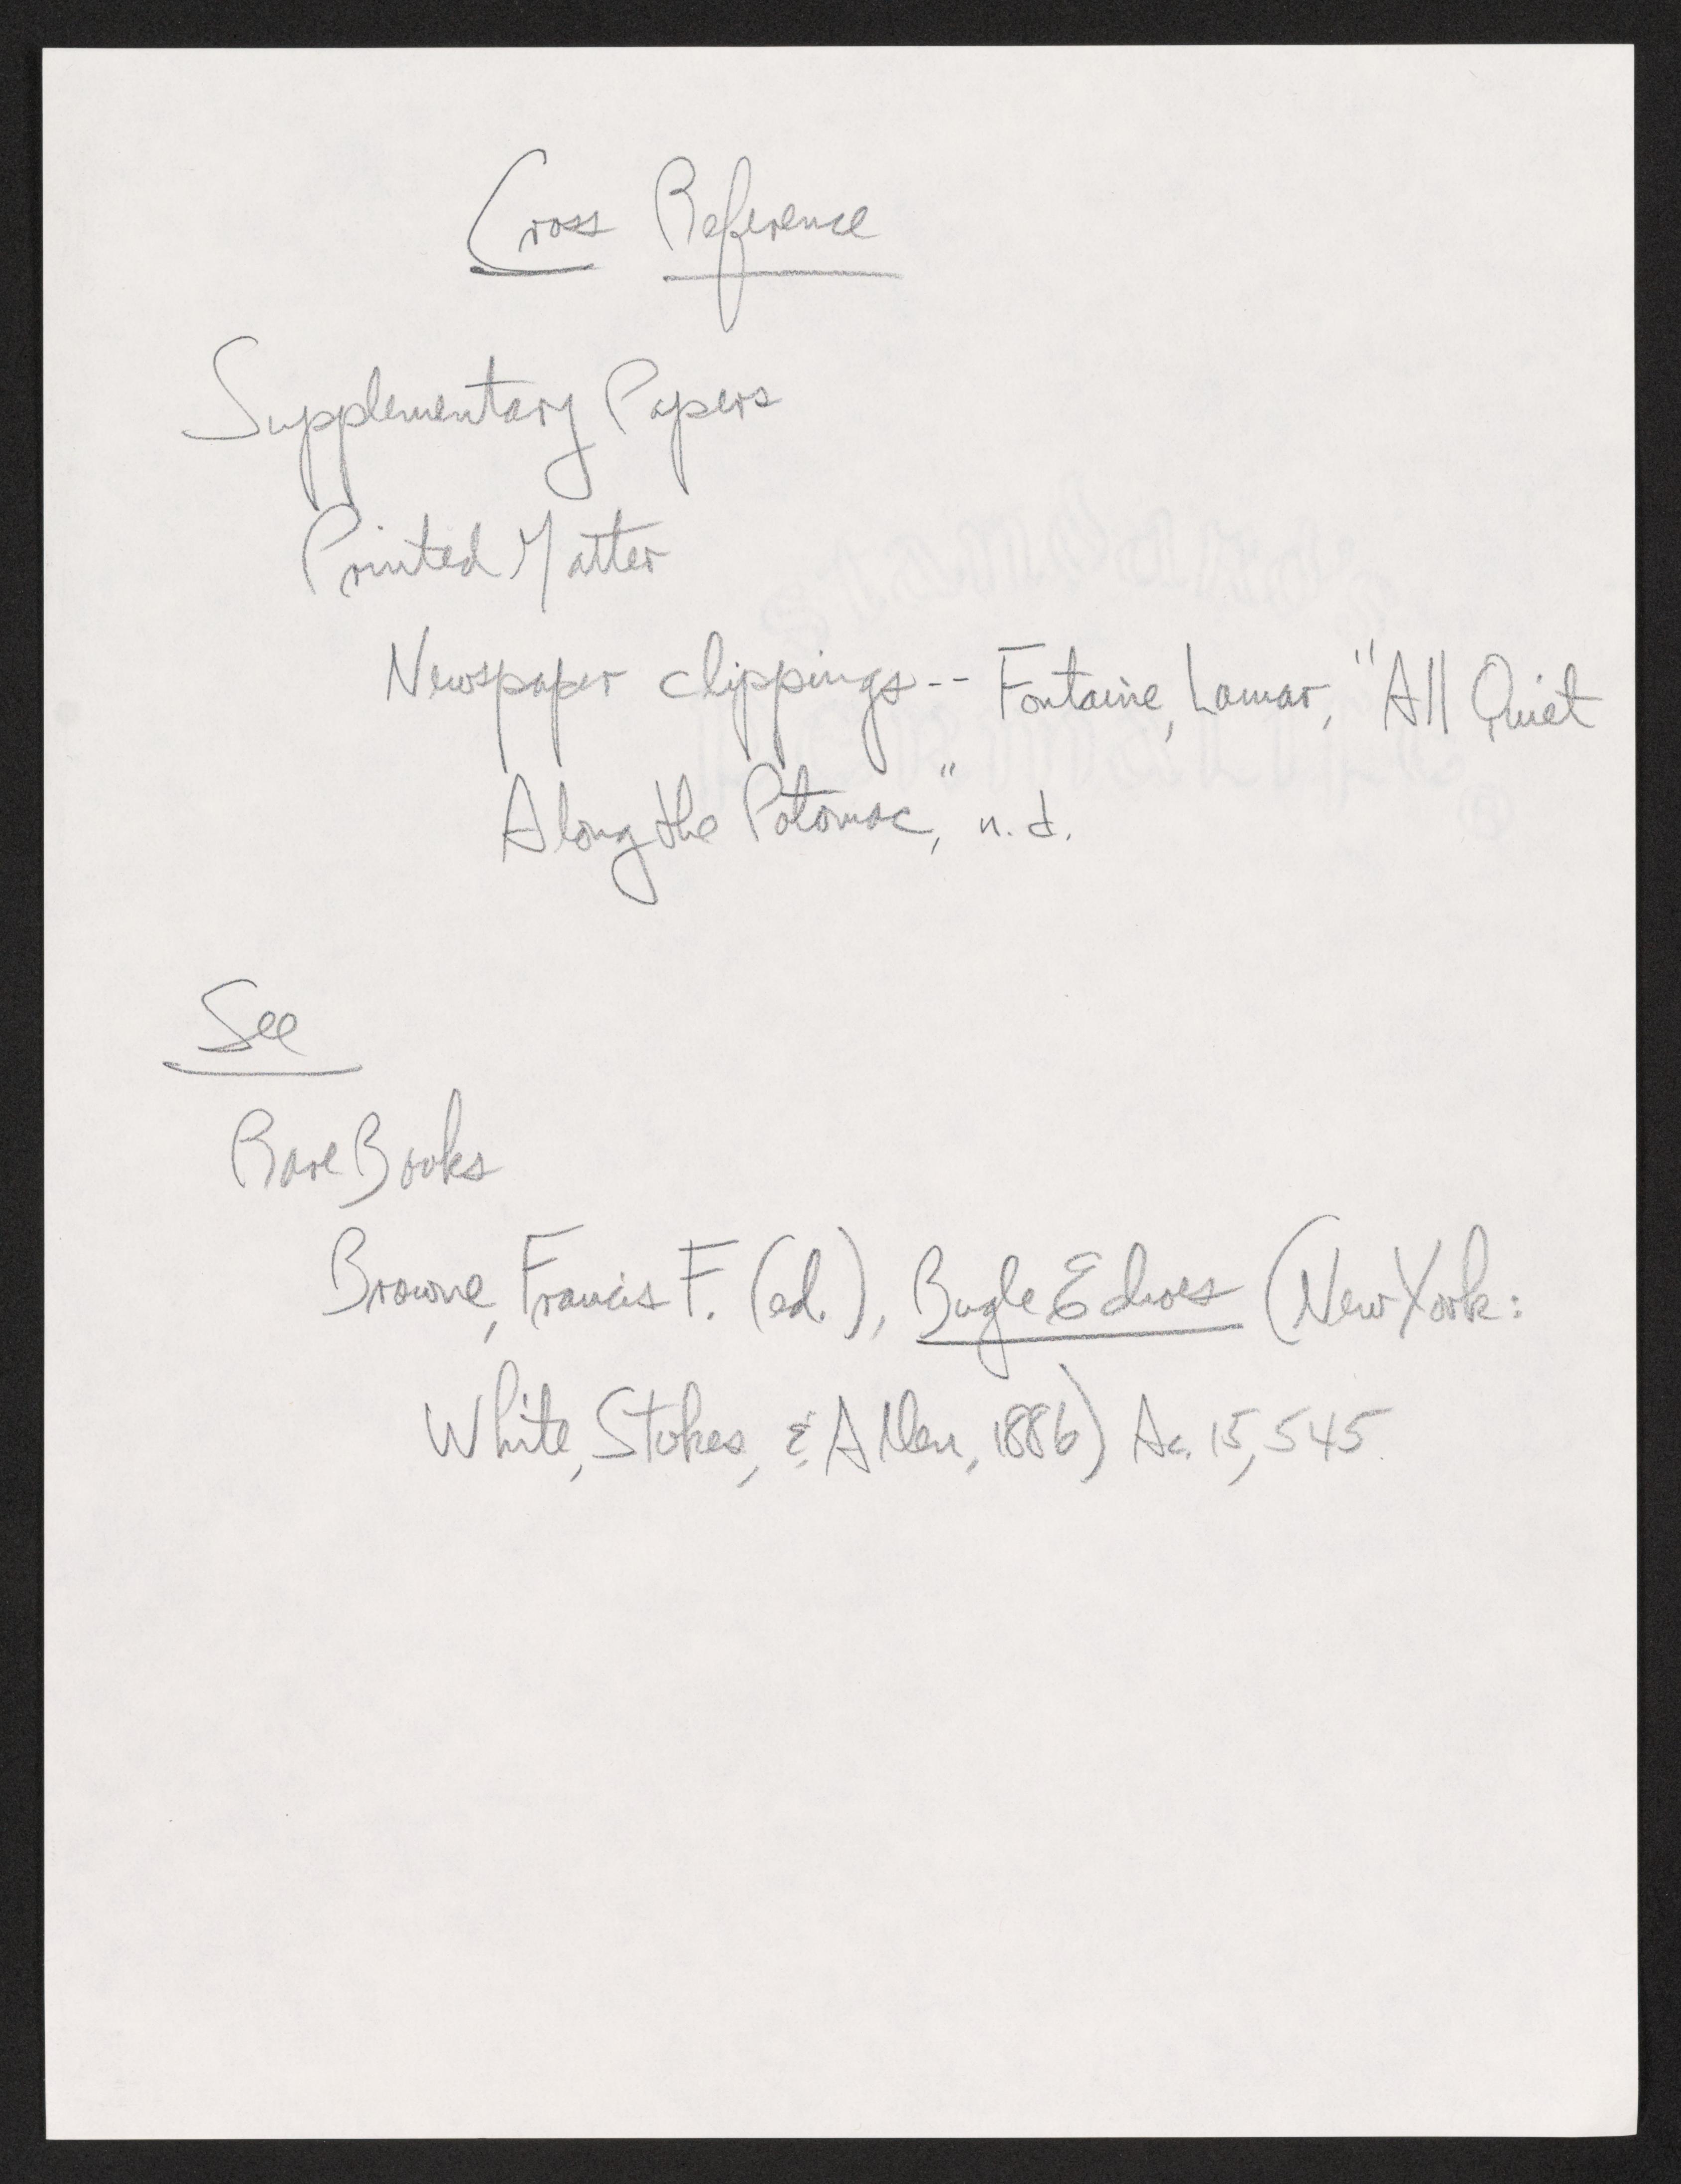 Cross Reference
Supplementary Papers
Printed Matter
Newspaper clippings -- Fontaine, Lamar, "All Quiet
Along the Potomac," n.d.
See
Rare Books
Browne, Francis F. (ed.), Bugle Echoes (New York:
White, Stokes, & Allen, 1886) Ac. 15,545